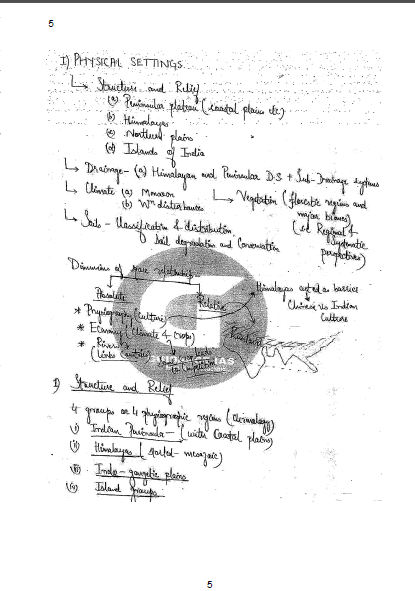 5
I) PHYSICAL SETTINGS
↳ Structure and Relief
(a) Peninsular plateau (coastal plains etc)
(b) Himalayas
(c) Northern plains
(d) Islands of India
↳ Drainage - (a) Himalayan and Peninsular D.S + Sub-Drainage systems
↳ Climate (a) Monsoon
(b) Wn disturbances
↳ Vegetation (floristic regions and
major biomes)
↳ Soils - Classification & distribution,
Soil degradation and Conservation
(i.e. Regional &
Systematic
perspectives)
Dimensions of space relationship -
Absolute
Relative
* Physiography (Culture)
* Economy (Climate & crops)
* Rivers
(links countries)
Himalayas acted as barrier
Chinese vs Indian
Culture
leads
to Competition
I) Structure and Relief
4 groups or 4 physiographic regions
(i) Indian Peninsula (with Coastal plains)
(ii) Himalayas (started - mesozoic)
(iii) Indo-gangetic plains
(iv) Island groups.
5